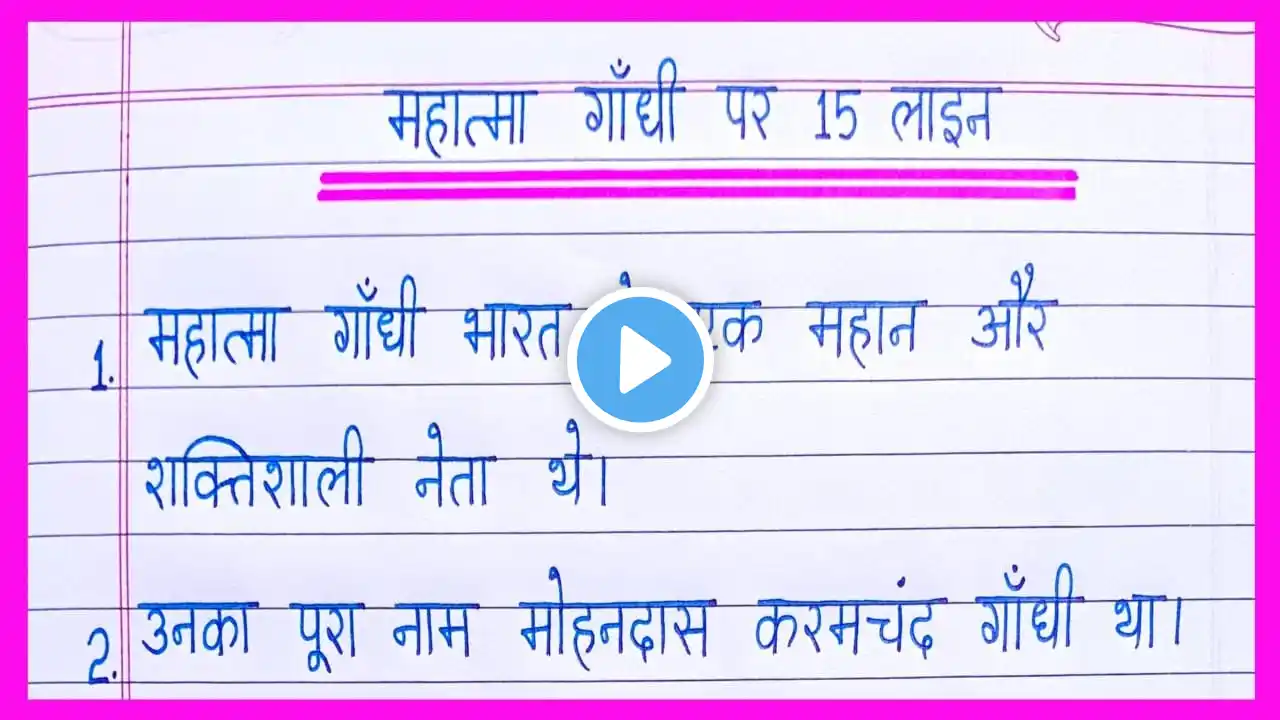 महात्मा गाँधी पर 15 लाइन
1. महात्मा गाँधी भारत महान और
शक्तिशाली नेता थे।
2. उनका पूरा नाम मोहनदास करमचंद गाँधी था।